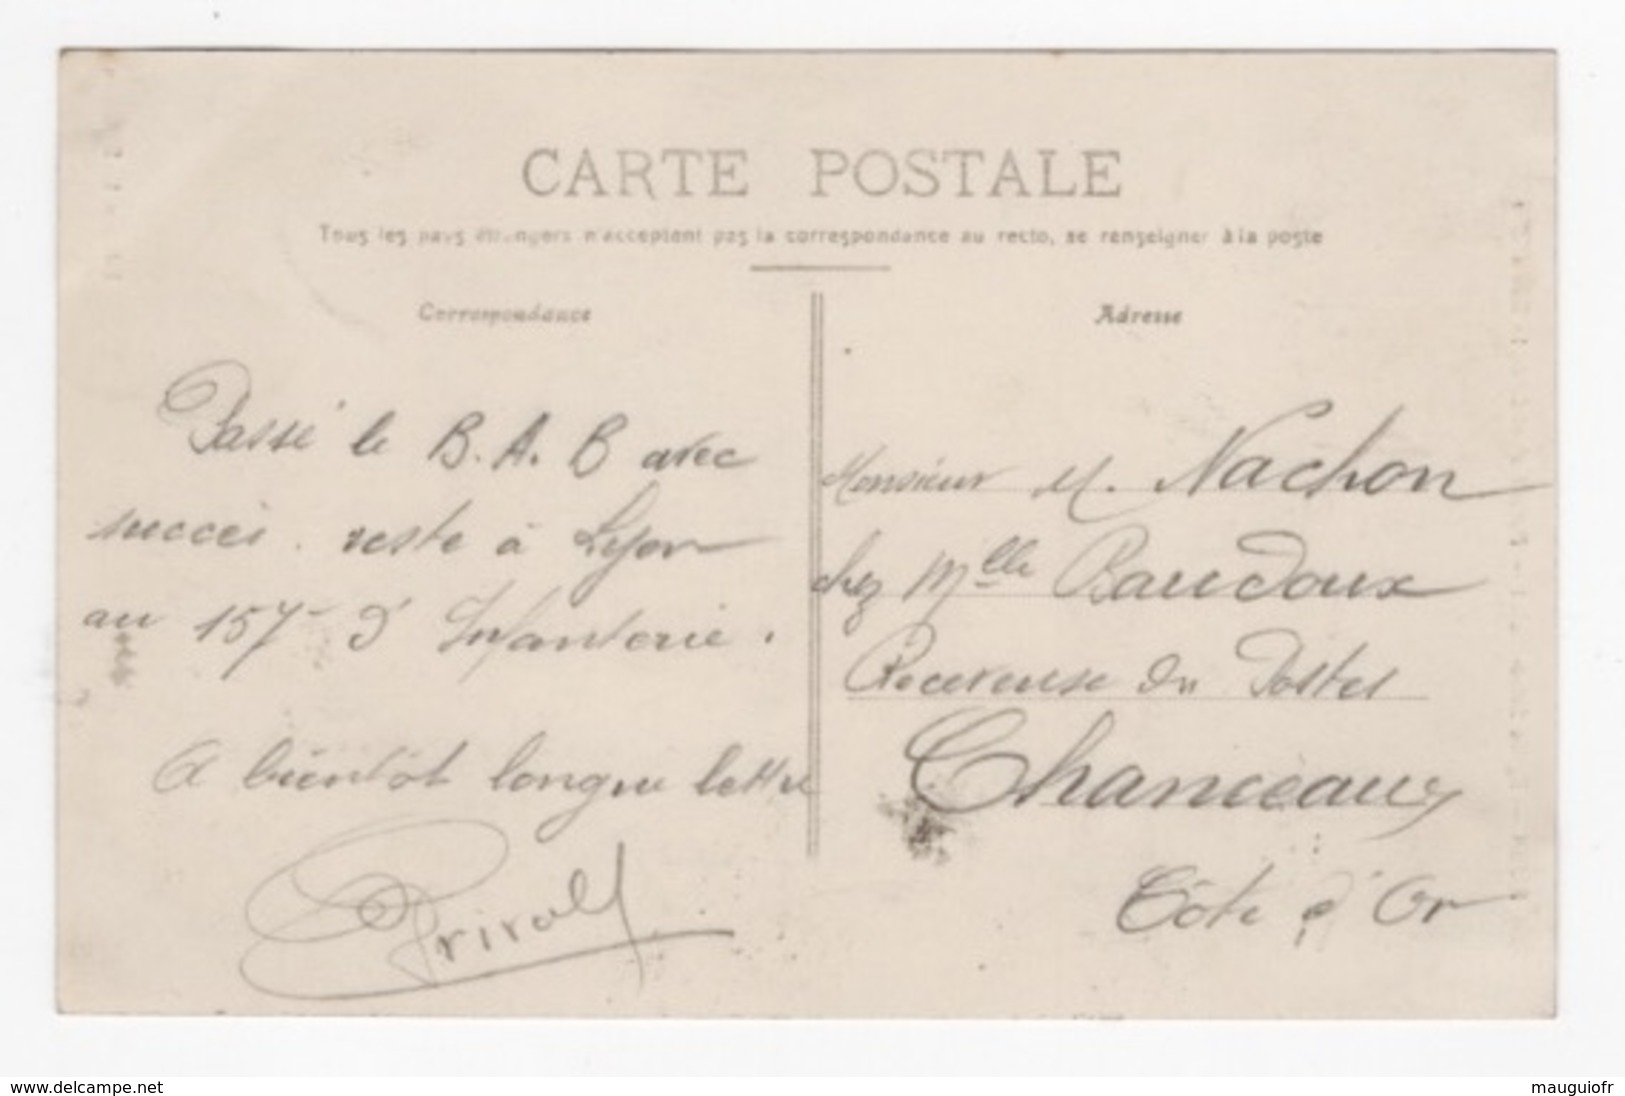 CARTE POSTALE
Tous les pays étrangers n'acceptent pas la correspondance au recto, se renseigner à la poste
Correspondance
Passé le B. A. B avec
succès. reste à Lyon
au 157e d'Infanterie.
A bientôt longue lettre
Adresse
Monsieur M. Nachon
chez Mlle Baudoux
Receveuse des Postes
Chanceaux
Côte d'Or
www.delcampe.net
mauguiofr